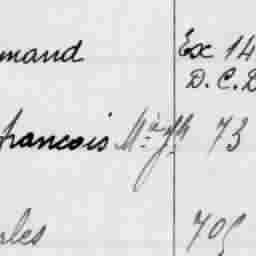 mand Ex 14
D. C. D
francois M.d Jh 73
les 705